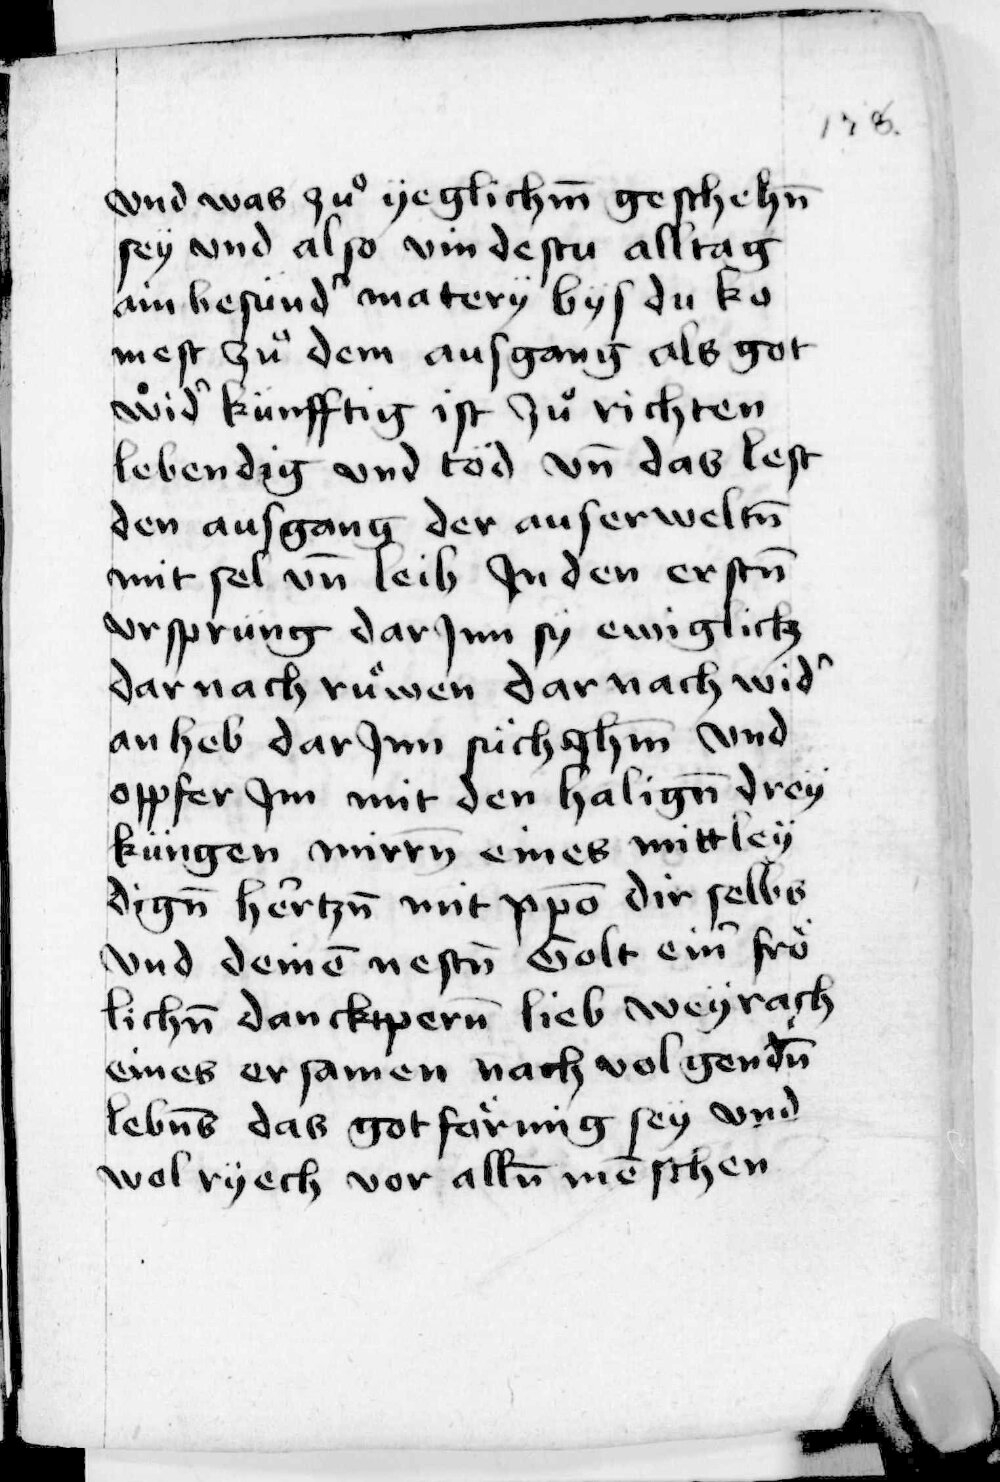 178.
vnd was zuͦ yeglichm̄ geschehn̄
sey vnd also vindestu alltag
ain besünd' matery bys du ko
mest zuͦ dem ausgang als got
wid' künfftig ist zuͦ richten
lebendig vnd töd vn̄ das lest
den ausgang der auserweltn̄
mit sel vn̄ leib Jn den erstn̄
vrsprüng dar Jnn sy ewiglich
dar nach ruͦwen dar nach wid'
an heb dar Jnn süch Jhm̄ vnd
opfer Jm mit den halign̄ drey
küngen mirrn̄ eines mittley
dign̄ hertzn̄ mit xp̄o dir selbs
vnd deinē nestn̄ Golt ein' frö
lichn̄ danckpern̄ lieb weyrach
eines ersamen nach volgendn̄
lebn̄s das got färmig sey vnd
wol ryech vor alln̄ mēschen